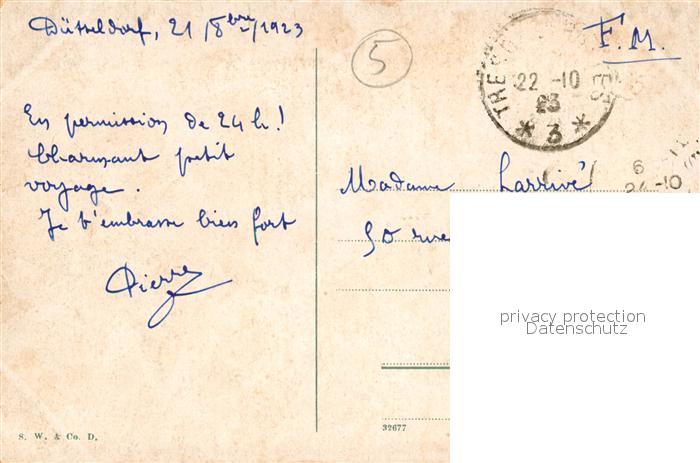 Düsseldorf, 21 8bre 1923
En permission de 24 h!
Charmant petit
voyage.
Je t'embrasse bien fort
Pierre
S. W. & Co. D.
5
F.M.
TRE
22 -10
23
* 3 *
6
24 -10
Madame Larrivé
50 rue
privacy protection
Datenschutz
32677